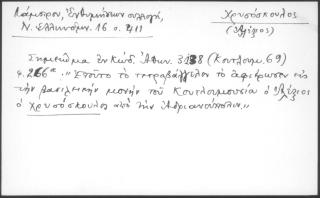 Λάμπρου, Ἐνθυμήσεων συλλογή, Χρυσόσκουλος
Ν. Ἑλληνομν. 16 σ. (Ἀλέξιος)
Σημείωμα ἐν κώδ. Ἀθων. 3138 (Κουτλουμ. 69)
φ. 266α. „Ἐτοῦτο τὸ τετραβάγγελον τὸ ἀφιέρωσεν εἰς
τὴν βασιλικὴν μονὴν τοῦ Κουτλουμουσίου ὁ Ἀλέξιος
ὁ Χρυσόσκουλος ἀπὸ τὴν Ἀδριανούπολιν."